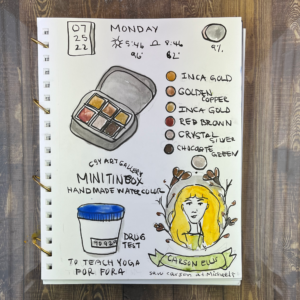 07
25
22
MONDAY
5:46 8:46
96° 82°
9%
INCA GOLD
GOLDEN
COPPER
INCA GOLD
RED BROWN
CRYSTAL
SILVER
CHOCOLATE
GREEN
GSY ART GALLERY
MINITINBOX
HANDMADE WATERCOLOR
DRUG
TEST
TO TEACH YOGA
FOR FORA
CARSON ELLIS